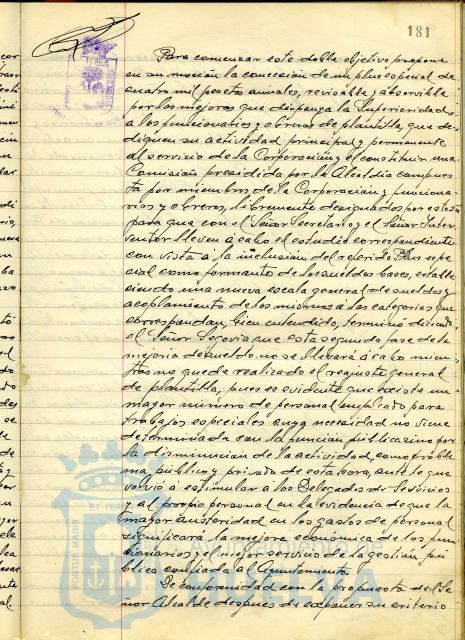 181
Para comenzar este doble objetivo propone
en su moción la concesión de un plus especial de
cuatro mil pesetas anuales, revisable y absorvible
por las mejoras que disponga la Superioridad
a los funcionarios y obreros de plantilla, que de-
diquen su actividad principal y permanente
al servicio de la Corporación y el constituir una
Comisión presidida por la Alcaldia compues-
ta por miembros de la Corporación y funciona-
rios y obreros, libremente designados por estos
para que con el Señor Secretario y el Señor Inter-
ventor lleven á cabo el estudio correspondiente
con vista á la inclusión del referido Plus espe-
cial como formante de los sueldos bases, estable-
ciendo una nueva escala general de sueldos y
acoplamiento de los mismos á las categorias que
correspondan, bien entendido, terminó diciendo
el Señor Segovia que esta segunda fase de la
mejoria de sueldo, no se llevará á cabo mien-
tras no quede realizado el reajuste general
de plantilla, pues es evidente que existe un
mayor número de personal empleado para
trabajos especiales cuya necesidad no viene
determinada con la función pública sino por
la disminución de la actividad, como proble-
ma público y privado de esta hora, ante lo que
volvió á estimular a los Delegados de Servicios
y al propio personal en la evidencia de que la
mayor austeridad en los gastos de personal
significará la mejora económica de los fun-
cionarios y el mejor servicio de la gestión pú-
blica confiada al Ayuntamiento.
De conformidad con la propuesta del Se-
ñor Alcalde despues de exponer su criterio
PORTUS MARIS
ET TERRAE